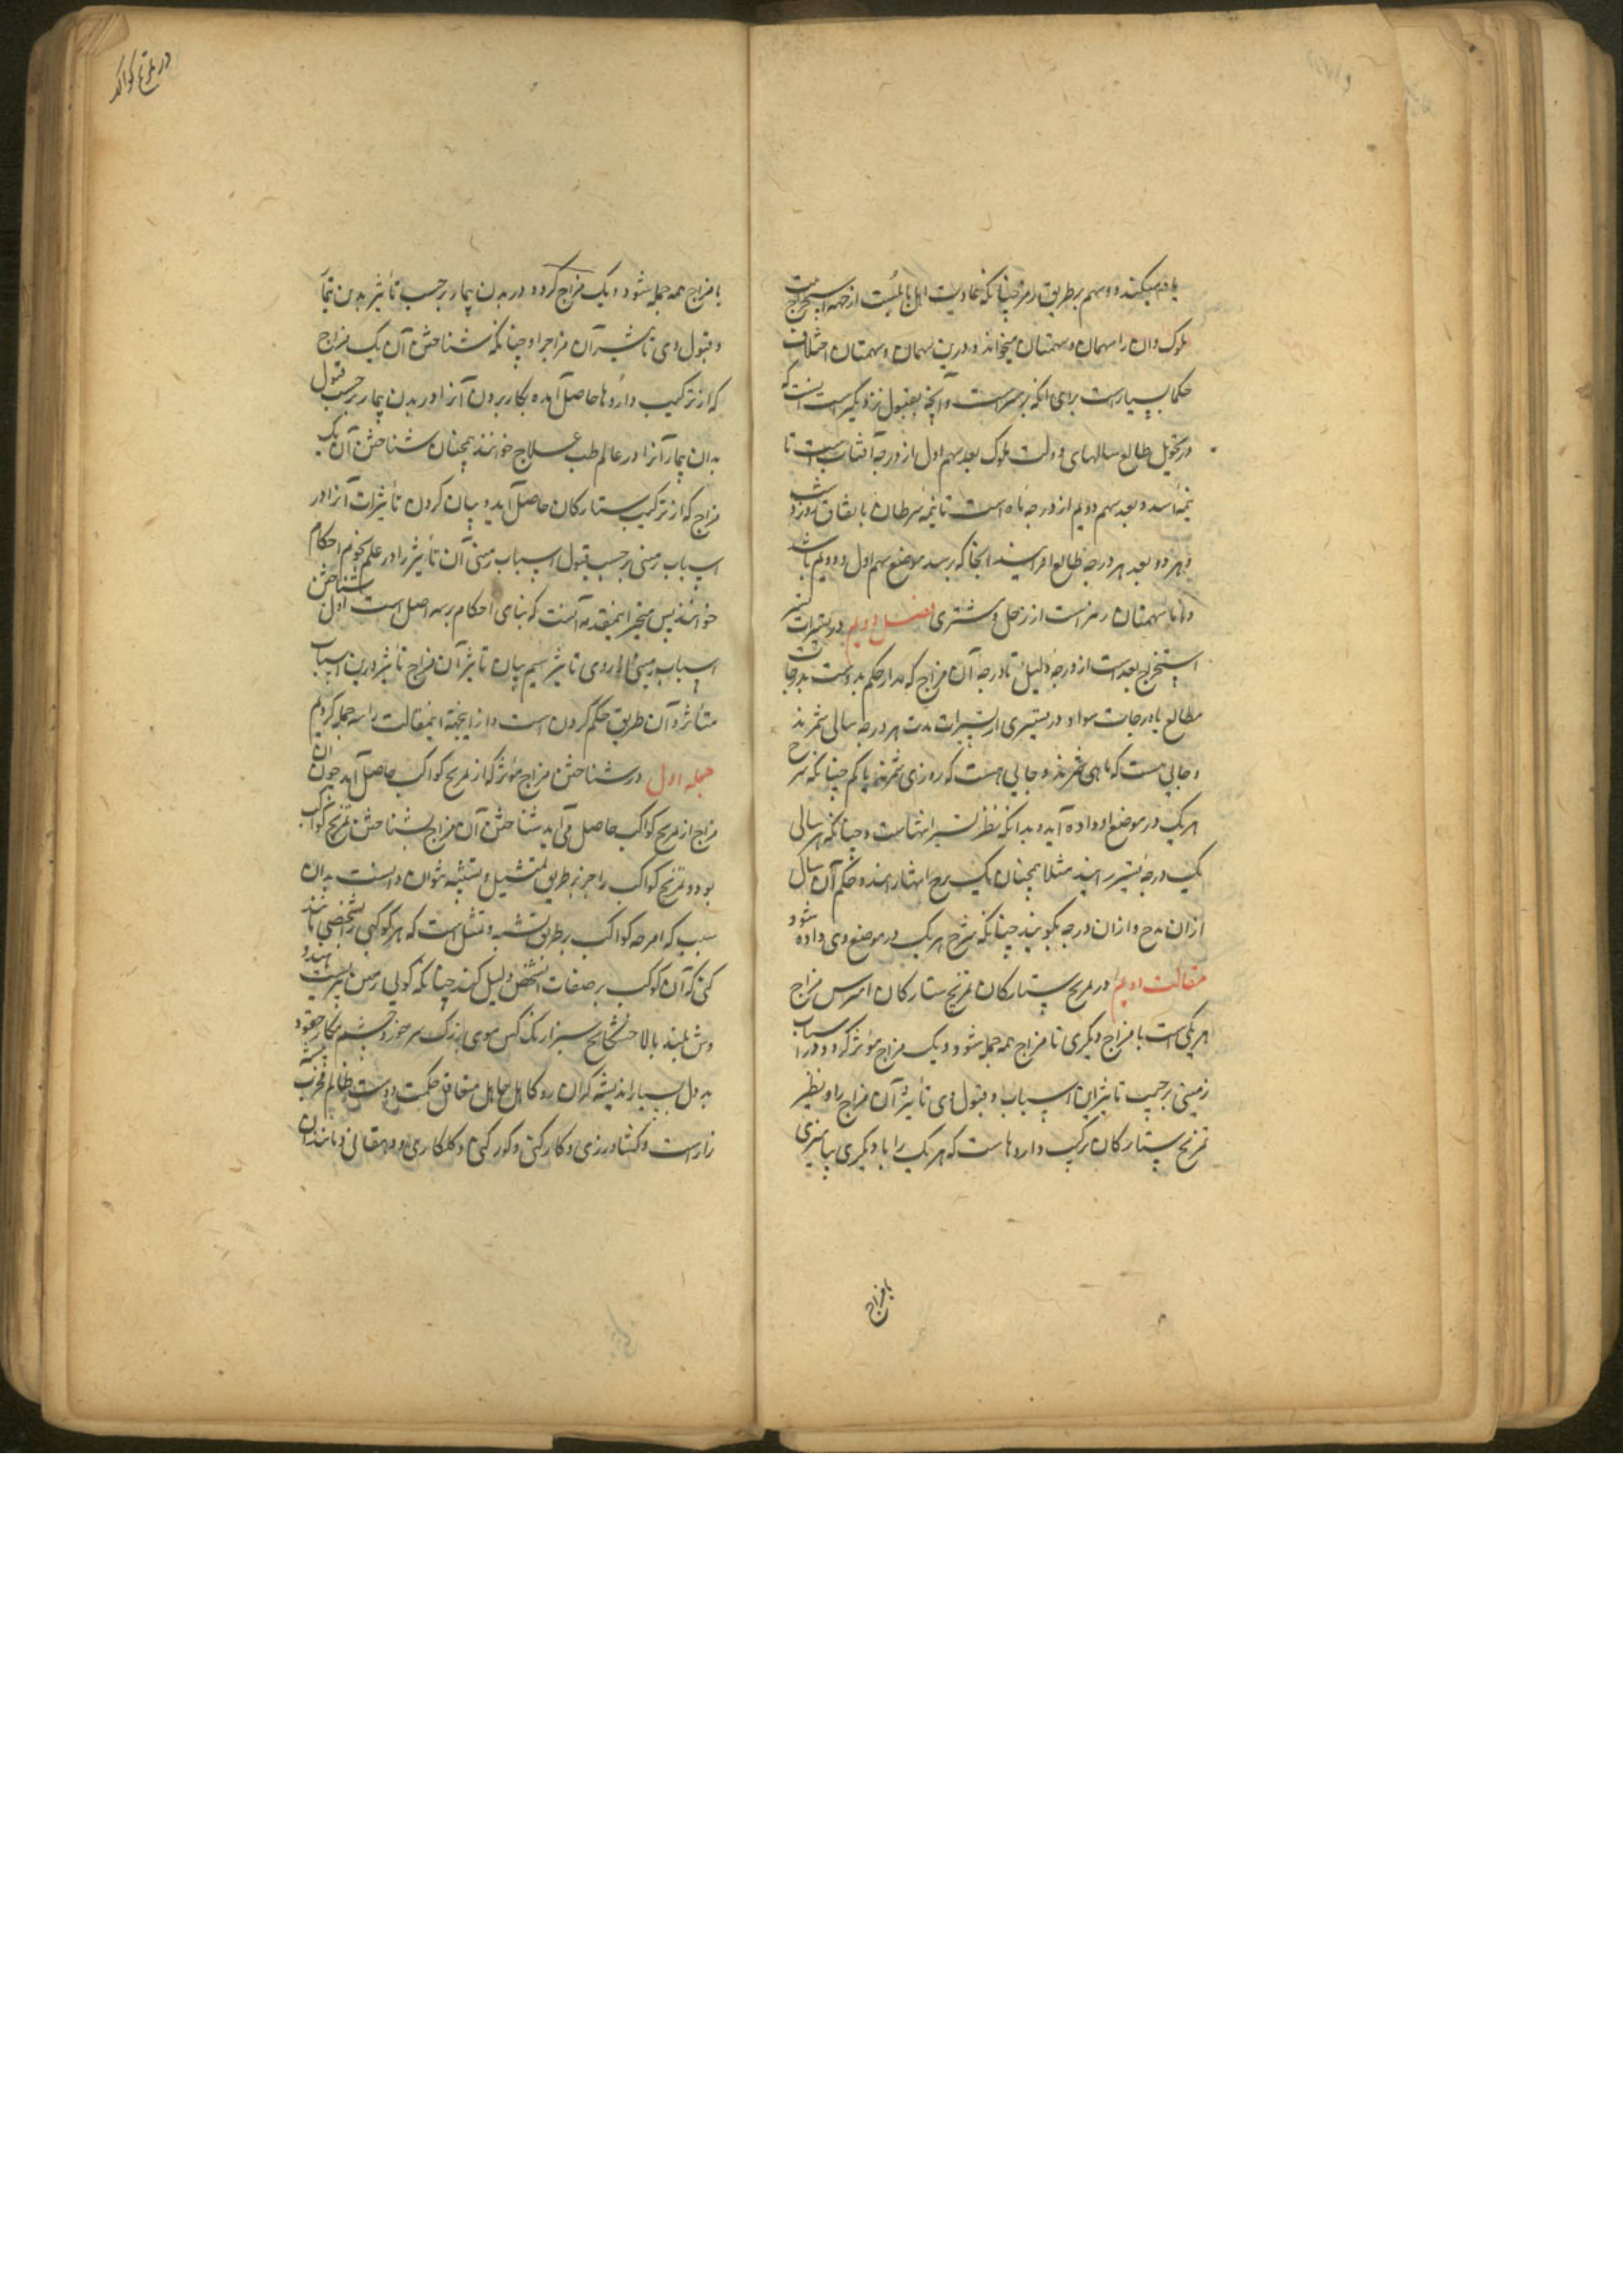 یاد میکنند دو سهم بر طریق رمز چنانکه عادت اهل بابلست از جهت استخراج
ملوک و آن را سهمان و سهمتان میخوانند و درین سهمان و سهمتان اختلاف
حکما بسیارست برای آنکه بر رمزست و آنچه بقبول نزدیکترست آنست که
در تحویل طالع سالهای دولت ملوک بعد سهم اول از درجه آفتاب است تا
نیمه اسد و بعد سهم دویم از درجه ماه است تا نیمه سرطان
و هر دو بعد بر درجه طالع افزایند آنجا که رسد موضع سهم اول و دویم باشد
و اما سهمتان رمز است از زحل و مشتری فصل دویم در تسییرات
استخراج بعدست از درجه دلیل تا درجه آن مزاج که مدار حکم بدوست بدرجات
مطالع یا درجات سوا و در تسییری از تسییرات مدت هر درجه سالی شمرند
و جایی هست که ماهی شمرند و جایی هست که روزی شمرند یا کم چنانکه شرح
هر یک در موضع او داده آید و بدانکه نظیر تسییر انتهاست و چنانکه هر سالی
یک درجه تسییر رانند مثلا همچنان یک برج انتها رانند و حکم آن سال
از آن برج و از آن درجه بگویند چنانکه شرح هر یک در موضع وی داده شود
مقالت دویم در تمزیج ستارکان تمزیج ستارکان مزاج
هر یکی است با مزاج دیگری تا مزاج همه جمله شود و یک مزاج مؤثر گردد در اسباب
زمینی بر حسب تأثیر این اسباب و قبول وی تأثیر آن مزاج را و نظیر
تمزیج ستارکان ترکیب داروهاست که هر یک را با دیگری بیامیزی
با مزاج
در تمزیج کواکب
با مزاج همه جمله شود و یک مزاج گردد در بدن بیمار بر حسب تأثیر بدن بیمار
و قبول وی تأثیر آن مزاج را و چنانکه شناختن آن یک مزاج
که از ترکیب داروها حاصل آید و بکار بردن آنرا در بدن بیمار بر حسب قبول
بدان بیمار آنرا در عالم طب علاج خوانند همچنان شناختن آن یک
مزاج که از ترکیب ستارکان حاصل آید و بیان کردن تأثیرات آنرا در
اسباب زمینی بر حسب قبول اسباب زمینی آن تأثیر را در علم نجوم احکام
خوانند پس نتیجه این مقدمه آنست که بنای احکام بر سه اصل است اول شناختن
اسباب زمینی سیم بیان تأثیر آن مزاج تأثیر درین اسباب
متأثر و آن طریق حکم کردن است و از اینجهة اینمقالت را سه جمله کردیم
جمله اول در شناختن مزاج مؤثر که از تمزیج کواکب حاصل آید چون آن
مزاج از تمزیج کواکب حاصل می آید شناختن آن مزاج بشناختن تمزیج کواکب
بود و تمزیج کواکب را جز بر طریق تمثیل و تشبیه نتوان دانست بدان
سبب که امزجه کواکب بر طریق تشبیه و تمثیل است که هر کوکبی را بشخصی مانند
کنی که آن کوکب بر صفات آن شخص دلیل کند چنانکه گویی زحل پیریست هندو
وش بلند بالا سبز ارنک کش موی بزرک سر خرد چشم مکار حقود
بد دل بسیار اندیشه گران رو کاهل جاهل حکمت دوست ظالم پیشه
زار است و کشاورزی و کار کنی و گور کنی و گلکاری و دهقانی و مانند آن